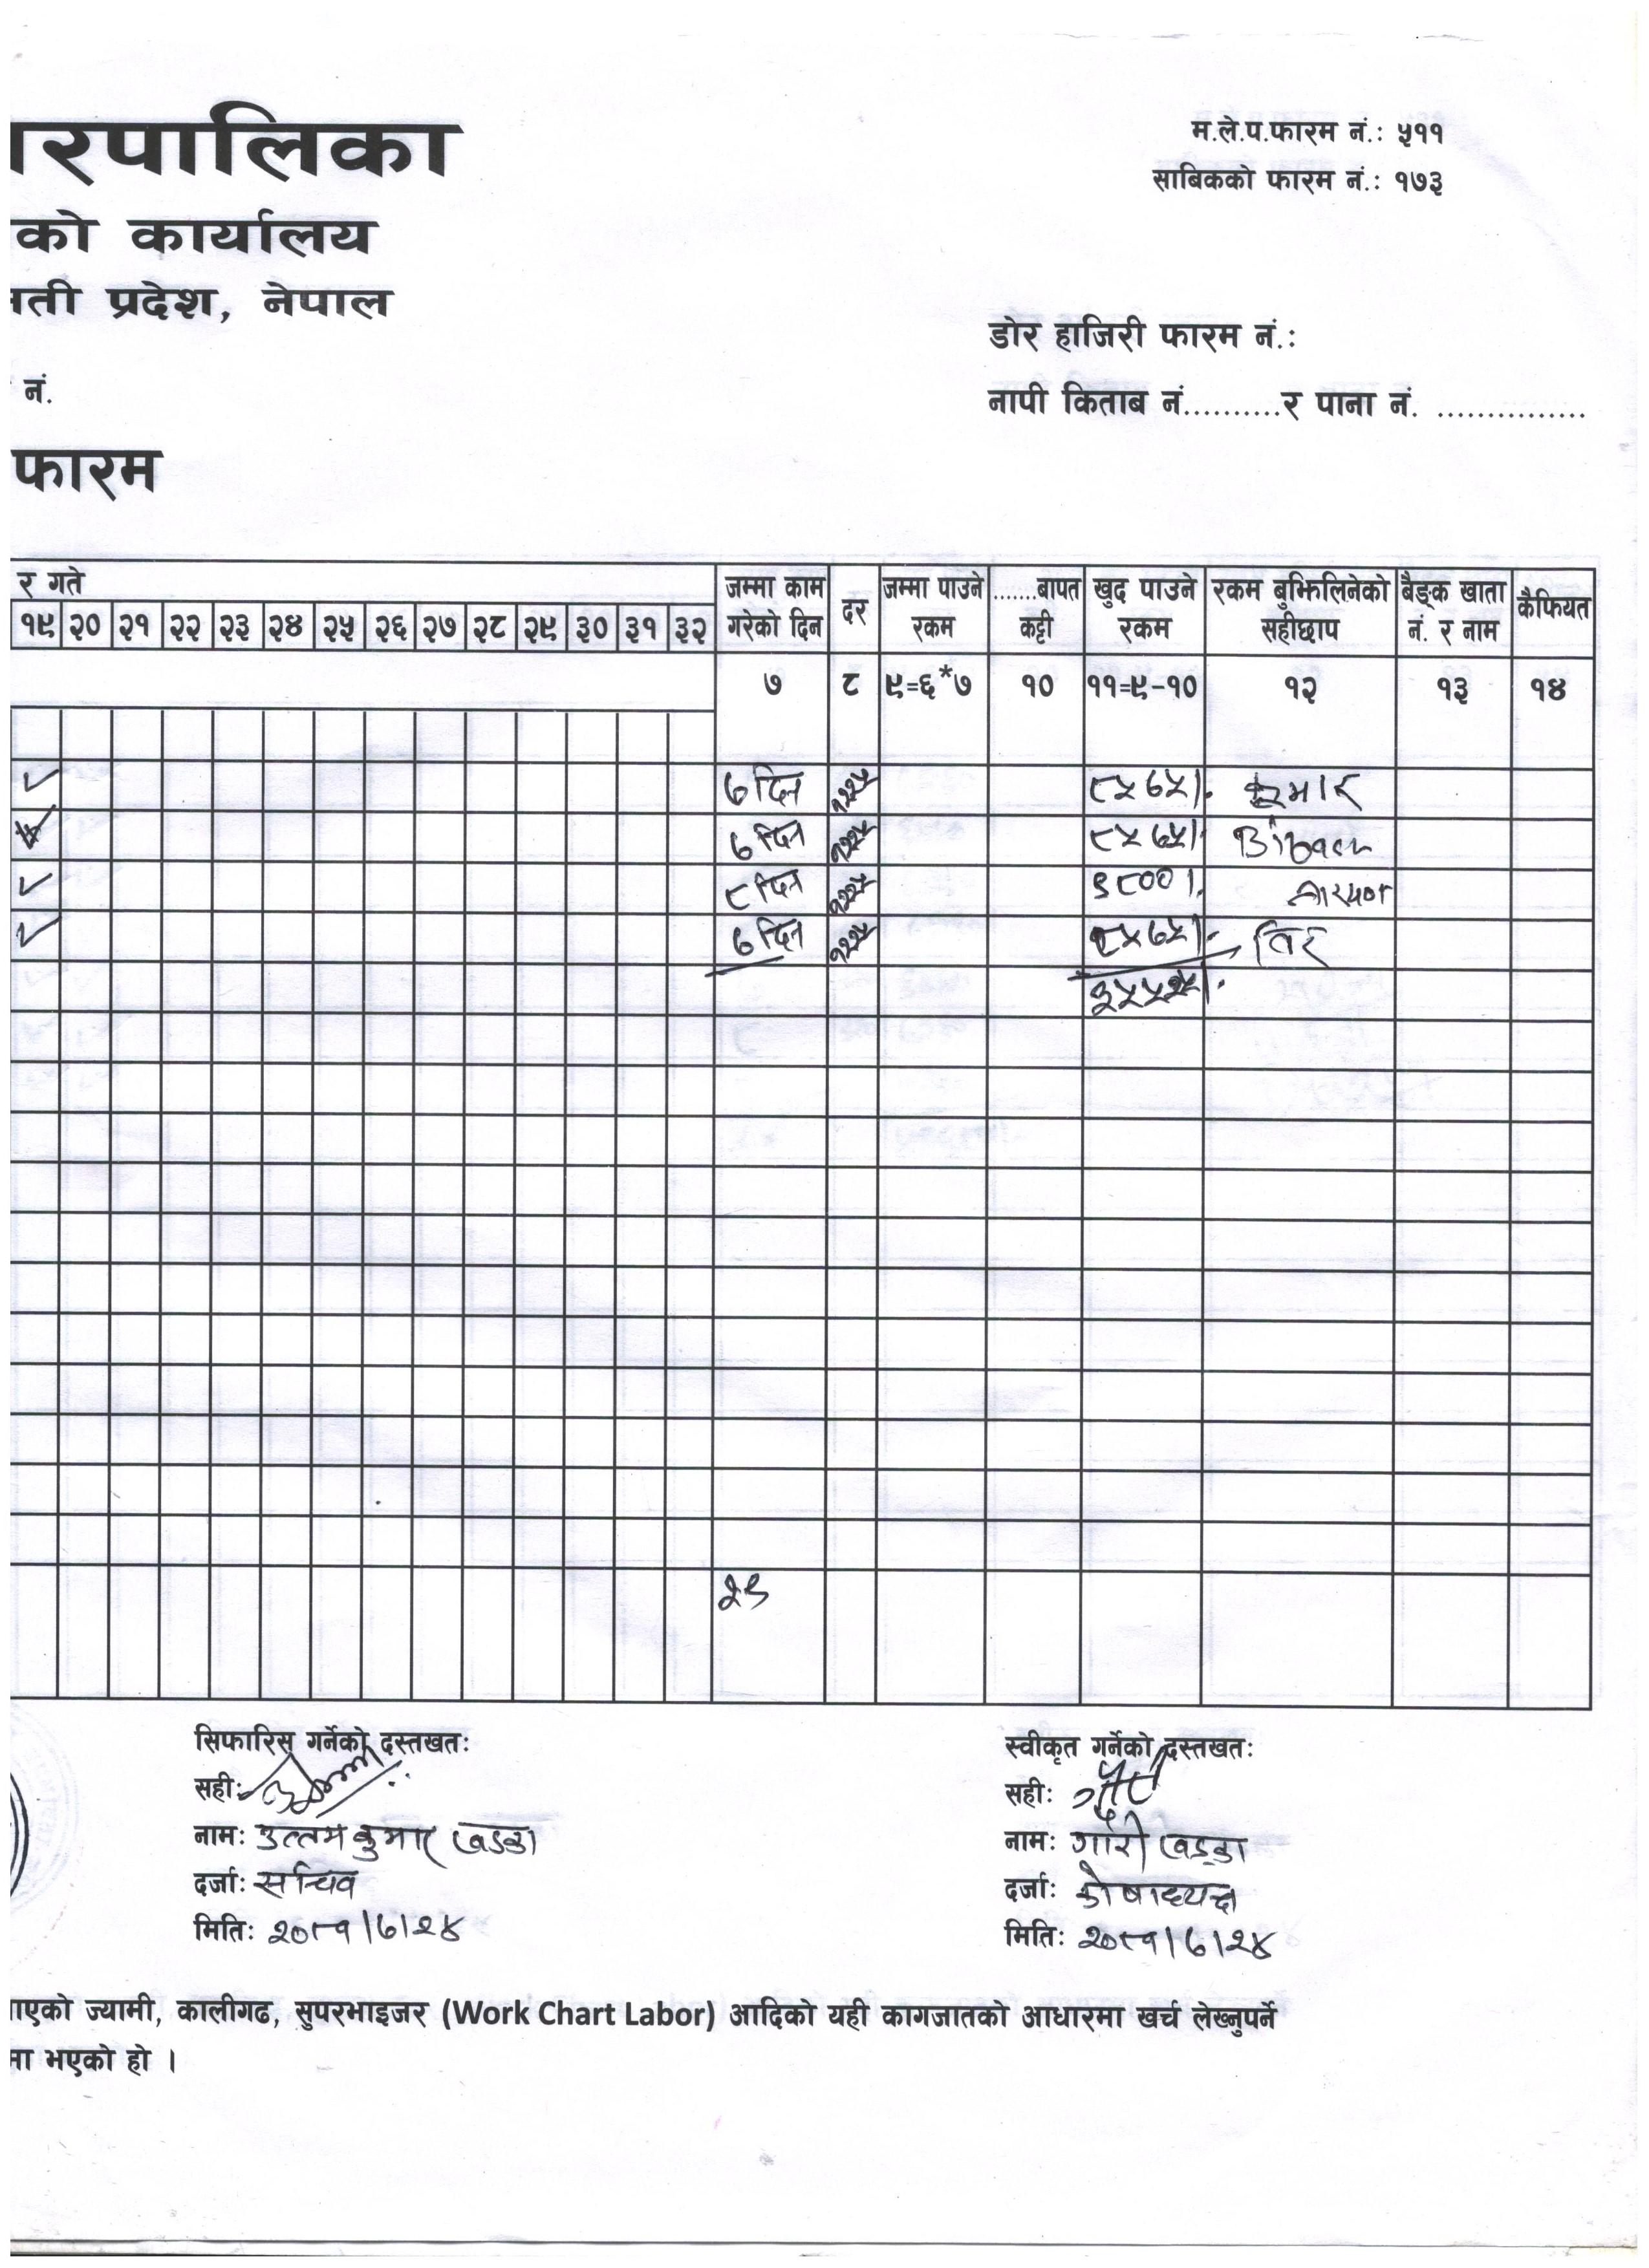 रपालिका
को कार्यालय
ती प्रदेश, नेपाल
नं.
फारम
म.ले.प.फारम नं.: ५११
साबिकको फारम नं.: १७३
डोर हाजिरी फारम नं.:
नापी किताब नं..........र पाना नं. ...............
र गते
१९ २० २१ २२ २३ २४ २५ २६ २७ २८ २९ ३० ३१ ३२
जम्मा काम गरेको दिन
दर
जम्मा पाउने रकम
.......बापत कट्टी
खुद पाउने रकम
रकम बुझिलिनेको सहीछाप
बैङ्क खाता नं. र नाम
कैफियत
७ ८ ९=६*७ १० ११=९-१० १२ १३ १४
७ दिन १२२५ ८५७५।- कुमार
७ दिन १२२५ ८५७५।-
८ दिन १२२५ ९८००।- नारायण
७ दिन १२२५ ८५७५।-
३५५२५।-
२९
सिफारिस गर्नेको दस्तखत:
सही:
नाम: उत्तम कुमार खड्का
दर्जा: सचिव
मिति: २०८१/७/२४
स्वीकृत गर्नेको दस्तखत:
सही:
नाम: गौरी खड्का
दर्जा: कोषाध्यक्ष
मिति: २०८१/७/२४
ाएको ज्यामी, कालीगढ, सुपरभाइजर (Work Chart Labor) आदिको यही कागजातको आधारमा खर्च लेख्नुपर्ने
मा भएको हो ।